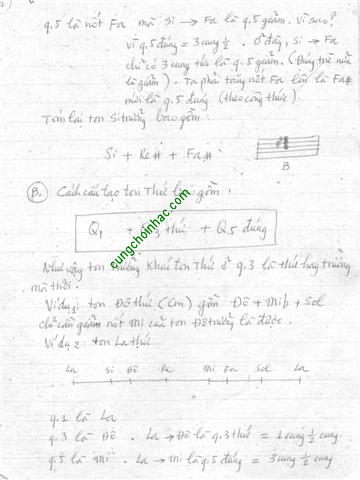 q.5 là nốt Fa mà Si → Fa là q.5 giảm. Vì sao?
vì q.5 đúng = 3 cung ½. Ở đây, Si → Fa
chỉ có 3 cung tức là q.5 giảm. (Đúng trừ nửa
là giảm). Ta phải tăng nốt Fa lên là Fa#
mới là q.5 đúng (theo công thức).
Tóm lại ton Si trưởng bao gồm:
Si + Re# + Fa#
B
B. Cách cấu tạo ton Thứ bao gồm:
Q1 + Q.3 thứ + Q.5 đúng
cungchoinhac.com
Như vậy ton Trưởng khác ton Thứ ở q.3 là thứ hay trưởng
mà thôi.
Ví dụ 1: ton Đô thứ (Cm) gồm Đô + Mib + Sol
chỉ cần giảm nốt Mi của ton Đô trưởng là được.
Ví dụ 2: ton La thứ
La Si Đô Re Mi Fa Sol La
q.1 là La
q.3 là Đô. La → Đô là q.3 thứ = 1 cung ½ cung.
q.5 là Mi. La → Mi là q.5 đúng = 3 cung ½ cung